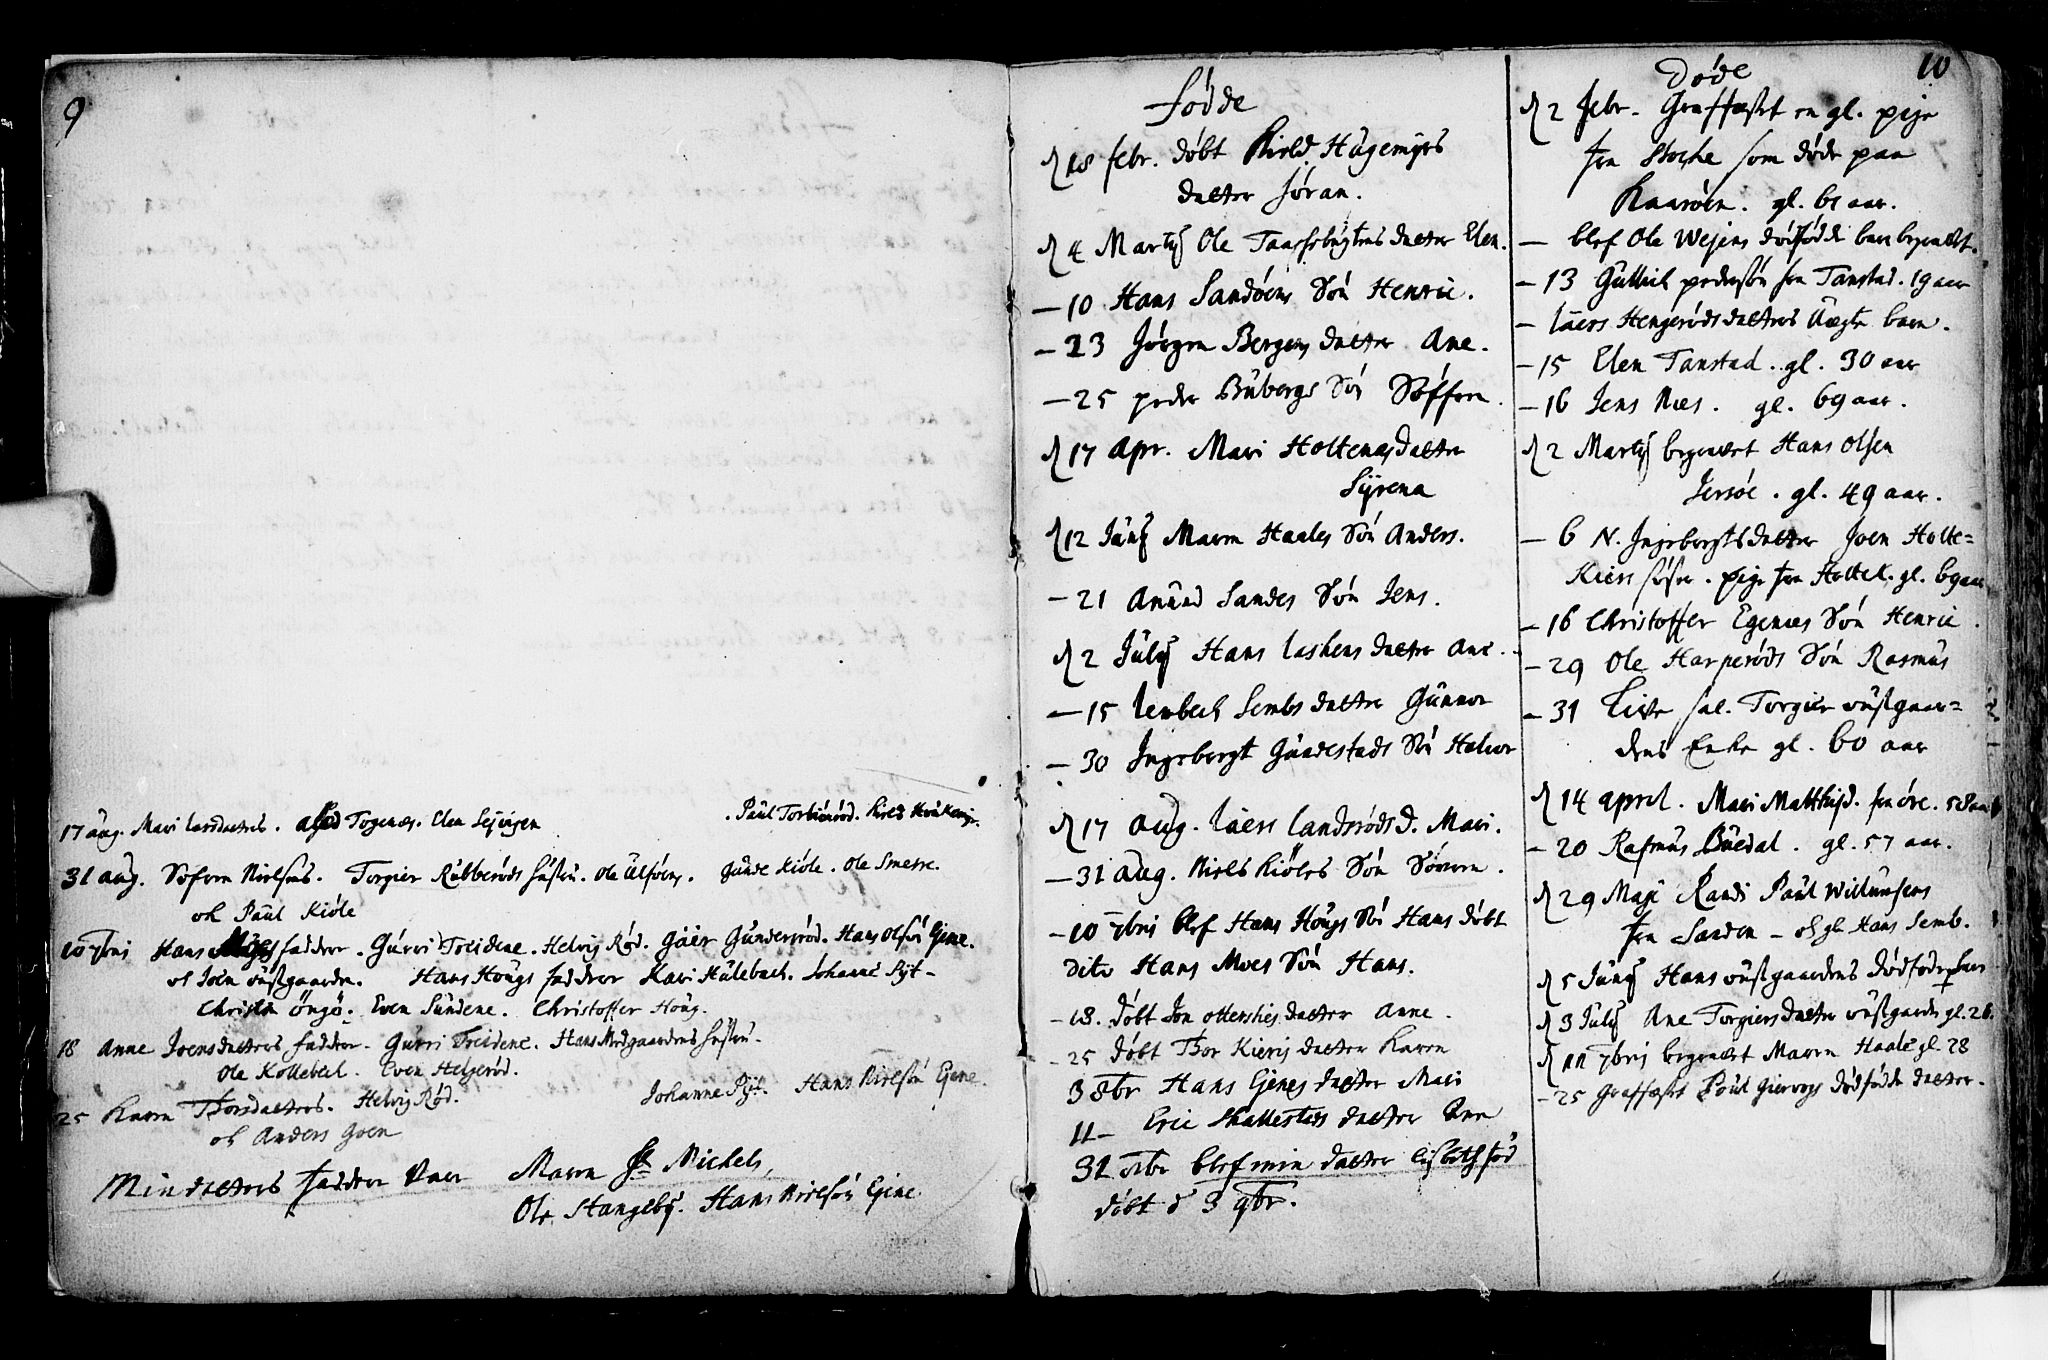 9
17 aug. Mari larsdatters. Togenæs. Elen
. Paul Torbiöröd. Niels
31 aug. Söfren Nielsens. Torgier Rübberöds hustru. Ole Ulföen. Gunde Kiöle. Ole Smette.
och Paul Kiöle
10 7bris Hans Moes faddere. Gurri Treidene. Helvig Röd. Gaier Gunderröd. Hans Olsön Gjene.
och Joen östgaarden. Hans Hougs faddere Kari Hulebach. Johanne Ryt-
Christen Öngö. Even Sundene. Christoffer Houg.
18 Anne Joensdatters faddere. Gurri Treidene. Hans Medgaardens hustru.
Ole Kollebech. Even Helgeröd.
25 Karen Thorsdatters. Helvig Röd. Johanne Ryt. Hans Nielsön Gjene.
och Anders Goen
Min datters faddere vare Maren Sl Michels,
Ole Stangeby. Hans Nielsön Gjene
10
födde
d 18 febr. döbt Kield Hugemyrs
datter Söran.
d 4 Martij Ole datter Elen.
— 10 Hans Sandöens Sön Henric.
— 23 Jörgen Bergens datter Ane.
— 25 peder Bübergs Sön Söffren.
d 17 apr. Mari Holtenæs datter
Syrena
d 12 Junij Maren Haales Sön Anders.
— 21 Anund Sandes Sön Jens.
d 2 Julij Hans laskens datter Ane.
— 15 lenbech Sembs datter Gunnor
— 30 Ingebergt Gundestads Sön Halvor
d 17 aug. laers landsröds d. Mari.
— 31 aug. Niels Kiöles Sön Sövren.
— 10 7bris blef Hans Hougs Sön Hans döbt
dito Hans Moes Sön Hans.
— 18. döbt Jon datter Anne.
— 25 döbt Thor Kieris datter Karen
3 8br Hans Gjenes datter Mari
11 — Eric Skallestads datter Ane
31 8br blef min datter lisbeth föd
döbt d 3 9br.
Döde
d 2 febr. Graffæstet en gl. pige
fra Stocke som döde paa
Kaaröen. gl. 61 aar.
— blef Ole Wejens dödfödde barn begravet.
— 13 Gulleich pedersön fra Tanstad. 19 aar
— laers Hengeröds datters Uægte barn.
— 15 Elen Tanstad. gl. 30 aar
— 16 Jens Næs. gl. 69 aar.
d 2 Martij begravet Hans Olsen
Jersöe. gl. 49 aar.
— 6 N. Ingebergtsdatter Joen Holte=
Kiers söster. pige fra Holtek. gl. 69 aar
— 16 Christoffer Egenæs Sön Henric.
— 29 Ole Harperöds Sön Rasmus
— 31 Live sal. Torgier östgaar=
dens Enke gl. 60 aar
d 14 aprel. Mari Matthisd. fra öre. 58 aar
— 20 Rasmus Buedal. gl. 57 aar.
d 29 Maji Randi Paul Willumsens
fra Sanden — och gl. Hans Semb.
d 5 Junij Hans östgaardens dödfödde barn
d 3 Julij Ane Torgiersdatter östgaarde gl. 26.
d 11 7bris begravet Maren Haale gl. 28
— 25 Graffæstet Poul Giervogs dödfödde datter.